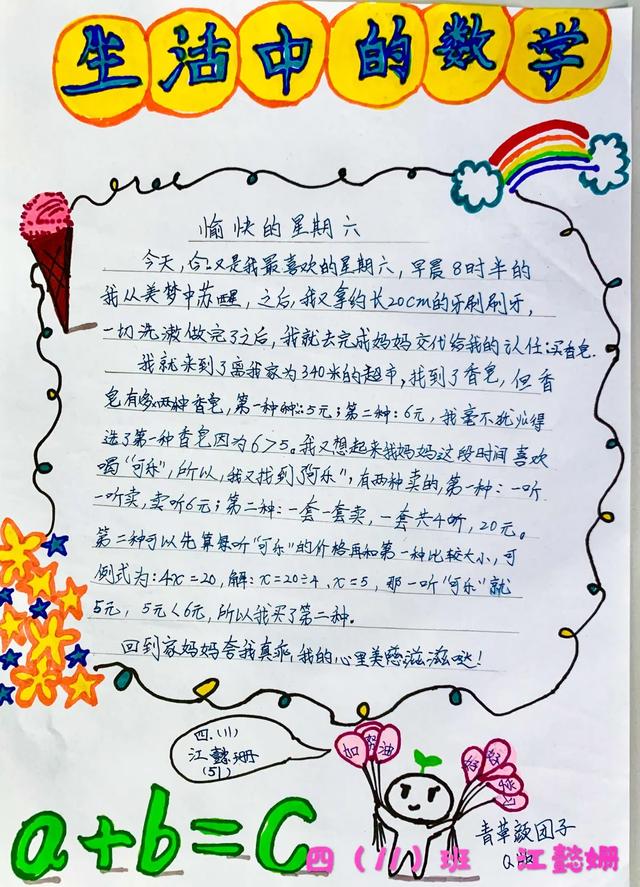 生活中的数学
愉快的星期六
今天,又是我最喜欢的星期六,早晨8时半的
我从美梦中苏醒,之后,我又拿约长20cm的牙刷刷牙,
一切洗漱做完了之后,我就去完成妈妈交代给我的认任:买香皂.
我就来到了离我家为340米的超市,找到了香皂,但香
皂有两种香皂,第一种:5元;第二种:6元,我毫不犹
选了第一种香皂因为6>5。我又想起来我妈妈这段时间喜欢
喝"可乐",所以,我又找到了"可乐",有两种卖的,第一种:一听
一听卖,卖听6元;第二种:一套一套卖,一套共4听,20元。
第二种可以先算每听"可乐"的价格再和第一种比较大小,可
例式为:4x=20,解:x=20÷4、x=5,那一听"可乐"就
5元,5元<6元,所以我买了第二种。
回到家妈妈夸我真乖,我的心里美滋滋哒!
四.(11)
江懿珊
(51)
加油
a+b=C
青草颜团子
四(11)班 江懿姗